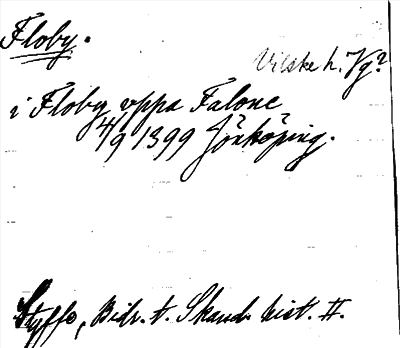 Floby.
Vilske h. Vg?
i Floby uppa Falone
4/9 1399 Jönköping.
Styffe, Bidr. t. Skand. hist. II.